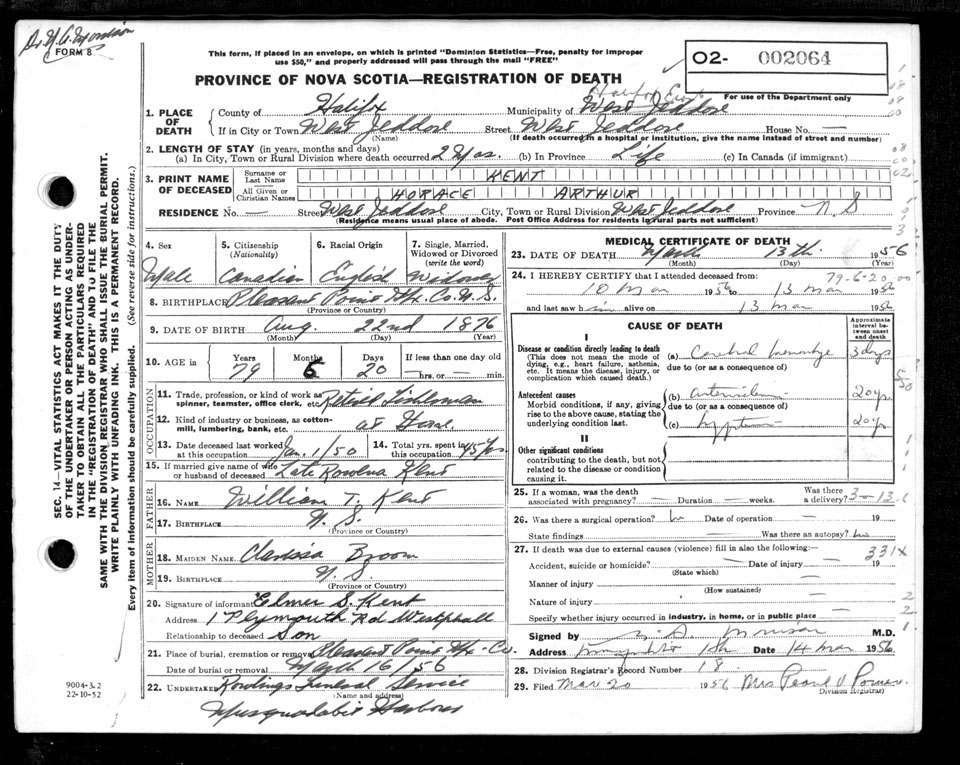 FORM 8
This form, if placed in an envelope, on which is printed "Dominion Statistics—Free, penalty for improper
use $50," and properly addressed will pass through the mail "FREE"
O2- 002064
For use of the Department only
PROVINCE OF NOVA SCOTIA—REGISTRATION OF DEATH
1. PLACE OF DEATH
County of Halifax Municipality of West Jeddore
Halifax East
If in City or Town West Jeddore Street West Jeddore House No. —
(Name) (If death occurred in a hospital or institution, give the name instead of street and number)
2. LENGTH OF STAY (in years, months and days)
(a) In City, Town or Rural Division where death occurred 2 yrs. (b) In Province Life (c) In Canada (if immigrant)
3. PRINT NAME OF DECEASED
Surname or Last Name KENT
All Given or Christian Names HORACE ARTHUR
RESIDENCE No. — Street West Jeddore City, Town or Rural Division West Jeddore Province N.S
(Residence means usual place of abode. Post Office Address for residents in rural parts not sufficient)
4. Sex
Male
5. Citizenship
(Nationality)
Canadian
6. Racial Origin
English
7. Single, Married, Widowed or Divorced
(write the word)
Widower
8. BIRTHPLACE Pleasant Point Hfx. Co. N.S.
(Province or Country)
9. DATE OF BIRTH Aug. 22nd 1876
(Month) (Day) (Year)
10. AGE in Years Months Days If less than one day old
79 6 20 —hrs. or — min.
OCCUPATION
11. Trade, profession, or kind of work as
spinner, teamster, office clerk, etc. Retired Fisherman
12. Kind of industry or business, as cotton-
mill, lumbering, bank, etc. at Home
13. Date deceased last worked
at this occupation Jan. 1/50
14. Total yrs. spent in
this occupation 45 yrs
15. If married give name of wife
or husband of deceased Late Rowena Kent
FATHER
16. NAME William T. Kent
17. BIRTHPLACE N.S.
(Province or Country)
MOTHER
18. MAIDEN NAME Clarissa Broom
19. BIRTHPLACE N.S.
(Province or Country)
20. Signature of informant Elmer S. Kent
Address 1 Plymouth Rd Westphall
Relationship to deceased Son
21. Place of burial, cremation or removal Pleasant Point Hfx. Co.
Date of burial or removal March 16/56
22. UNDERTAKER Rowlings Funeral Service
(Name and address)
Musquodobit Harbour
MEDICAL CERTIFICATE OF DEATH
23. DATE OF DEATH March 13th 1956
(Month) (Day) (Year)
24. I HEREBY CERTIFY that I attended deceased from: 79-6-20
10 Mar 1956 to 13 Mar 1956
and last saw h im alive on 13 Mar 1956
CAUSE OF DEATH
Approximate interval between onset and death
I
Disease or condition directly leading to death
(This does not mean the mode of
dying, e.g., heart failure, asthenia,
etc. It means the disease, injury, or
complication which caused death.)
(a) Cerebral hemorrhage 3 days
due to (or as a consequence of)
Antecedent causes
Morbid conditions, if any, giving
rise to the above cause, stating the
underlying condition last.
(b) 20 yrs
due to (or as a consequence of)
(c) 20 yrs
II
Other significant conditions
contributing to the death, but not
related to the disease or condition
causing it.
25. If a woman, was the death
associated with pregnancy? — Duration — weeks. Was there
a delivery?
26. Was there a surgical operation? no Date of operation — 19
State findings — Was there an autopsy? no
27. If death was due to external causes (violence) fill in also the following:— 331X
Accident, suicide or homicide? — Date of injury — 19
(State which)
Manner of injury
(How sustained)
Nature of injury —
Specify whether injury occurred in industry, in home, or in public place —
Signed by M.D.
Address Date 14 Mar 1956
28. Division Registrar's Record Number 18.
29. Filed Mar 20 1956 Mrs Pearl V. Power
Division Registrar
SEC. 14—VITAL STATISTICS ACT MAKES IT THE DUTY
OF THE UNDERTAKER OR PERSON ACTING AS UNDER-
TAKER TO OBTAIN ALL THE PARTICULARS REQUIRED
IN THE "REGISTRATION OF DEATH" AND TO FILE THE
SAME WITH THE DIVISION REGISTRAR WHO SHALL ISSUE THE BURIAL PERMIT.
WRITE PLAINLY WITH UNFADING INK. THIS IS A PERMANENT RECORD.
Every item of information should be carefully supplied. (See reverse side for instructions.)
9004-3.2
22-10-52